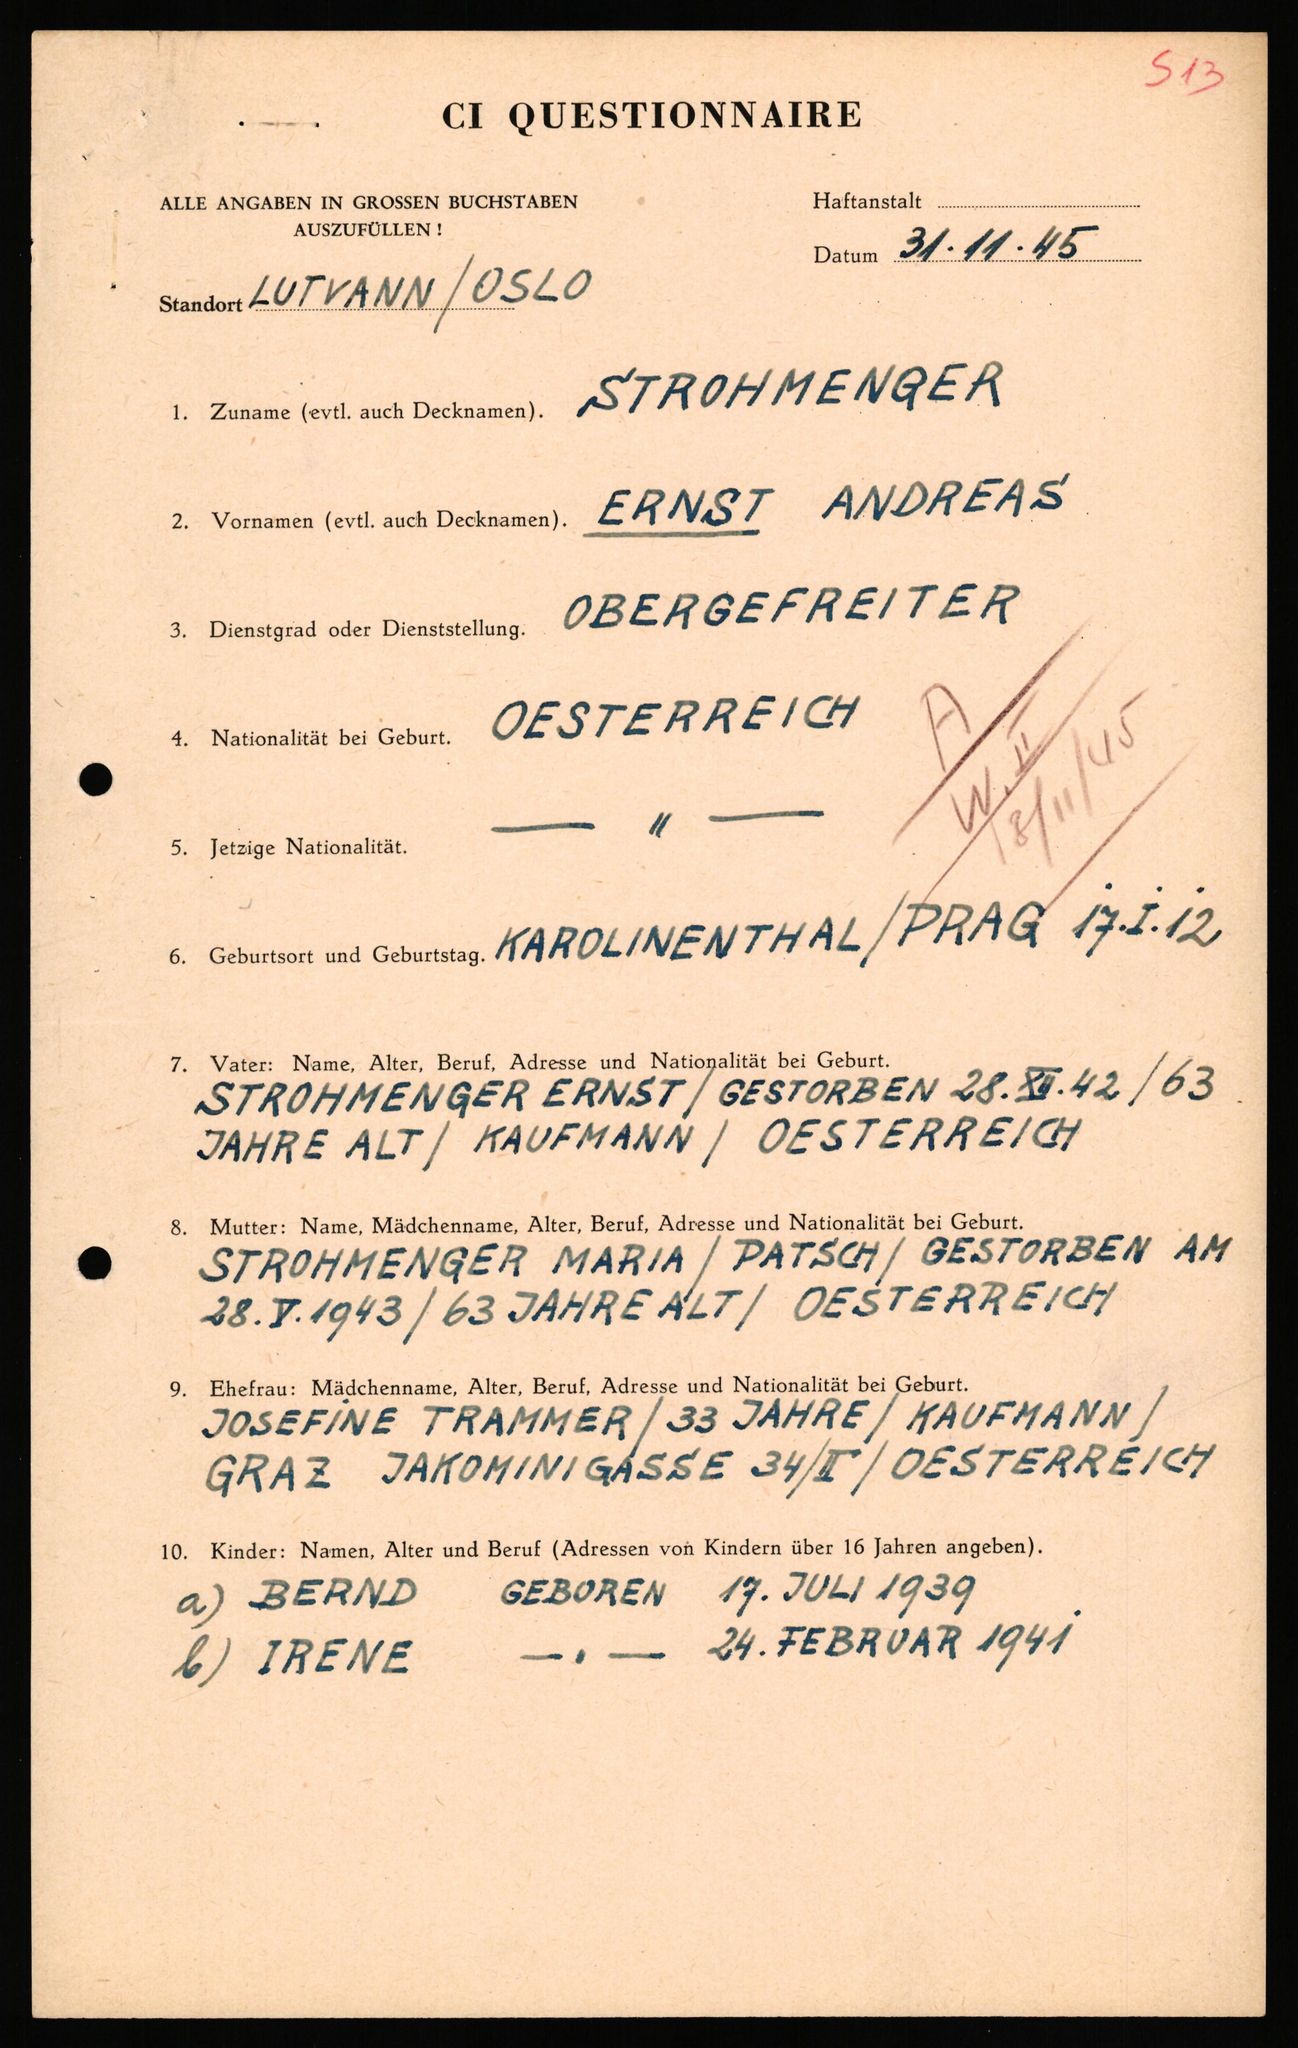 S 13
CI QUESTIONNAIRE
ALLE ANGABEN IN GROSSEN BUCHSTABEN
AUSZUFÜLLEN!
Haftanstalt
Datum 31.11.45
Standort LUTVANN/OSLO
1. Zuname (evtl. auch Decknamen). STROHMENGER
2. Vornamen (evtl. auch Decknamen). ERNST ANDREAS
3. Dienstgrad oder Dienststellung. OBERGEFREITER
4. Nationalität bei Geburt. OESTERREICH
A
W. II
18/11/45
5. Jetzige Nationalität. — " —
6. Geburtsort und Geburtstag. KAROLINENTHAL/PRAG 17.I.12
7. Vater: Name, Alter, Beruf, Adresse und Nationalität bei Geburt.
STROHMENGER ERNST/GESTORBEN 28.XII.42/63
JAHRE ALT/ KAUFMANN/ OESTERREICH
8. Mutter: Name, Mädchenname, Alter, Beruf, Adresse und Nationalität bei Geburt.
STROHMENGER MARIA/PATSCH/ GESTORBEN AM
28.V.1943/63 JAHRE ALT/ OESTERREICH
9. Ehefrau: Mädchenname, Alter, Beruf, Adresse und Nationalität bei Geburt.
JOSEFINE TRAMMER/33 JAHRE/ KAUFMANN/
GRAZ JAKOMINIGASSE 34/II/OESTERREICH
10. Kinder: Namen, Alter und Beruf (Adressen von Kindern über 16 Jahren angeben).
a) BERND GEBOREN 17. JULI 1939
b) IRENE —.— 24. FEBRUAR 1941